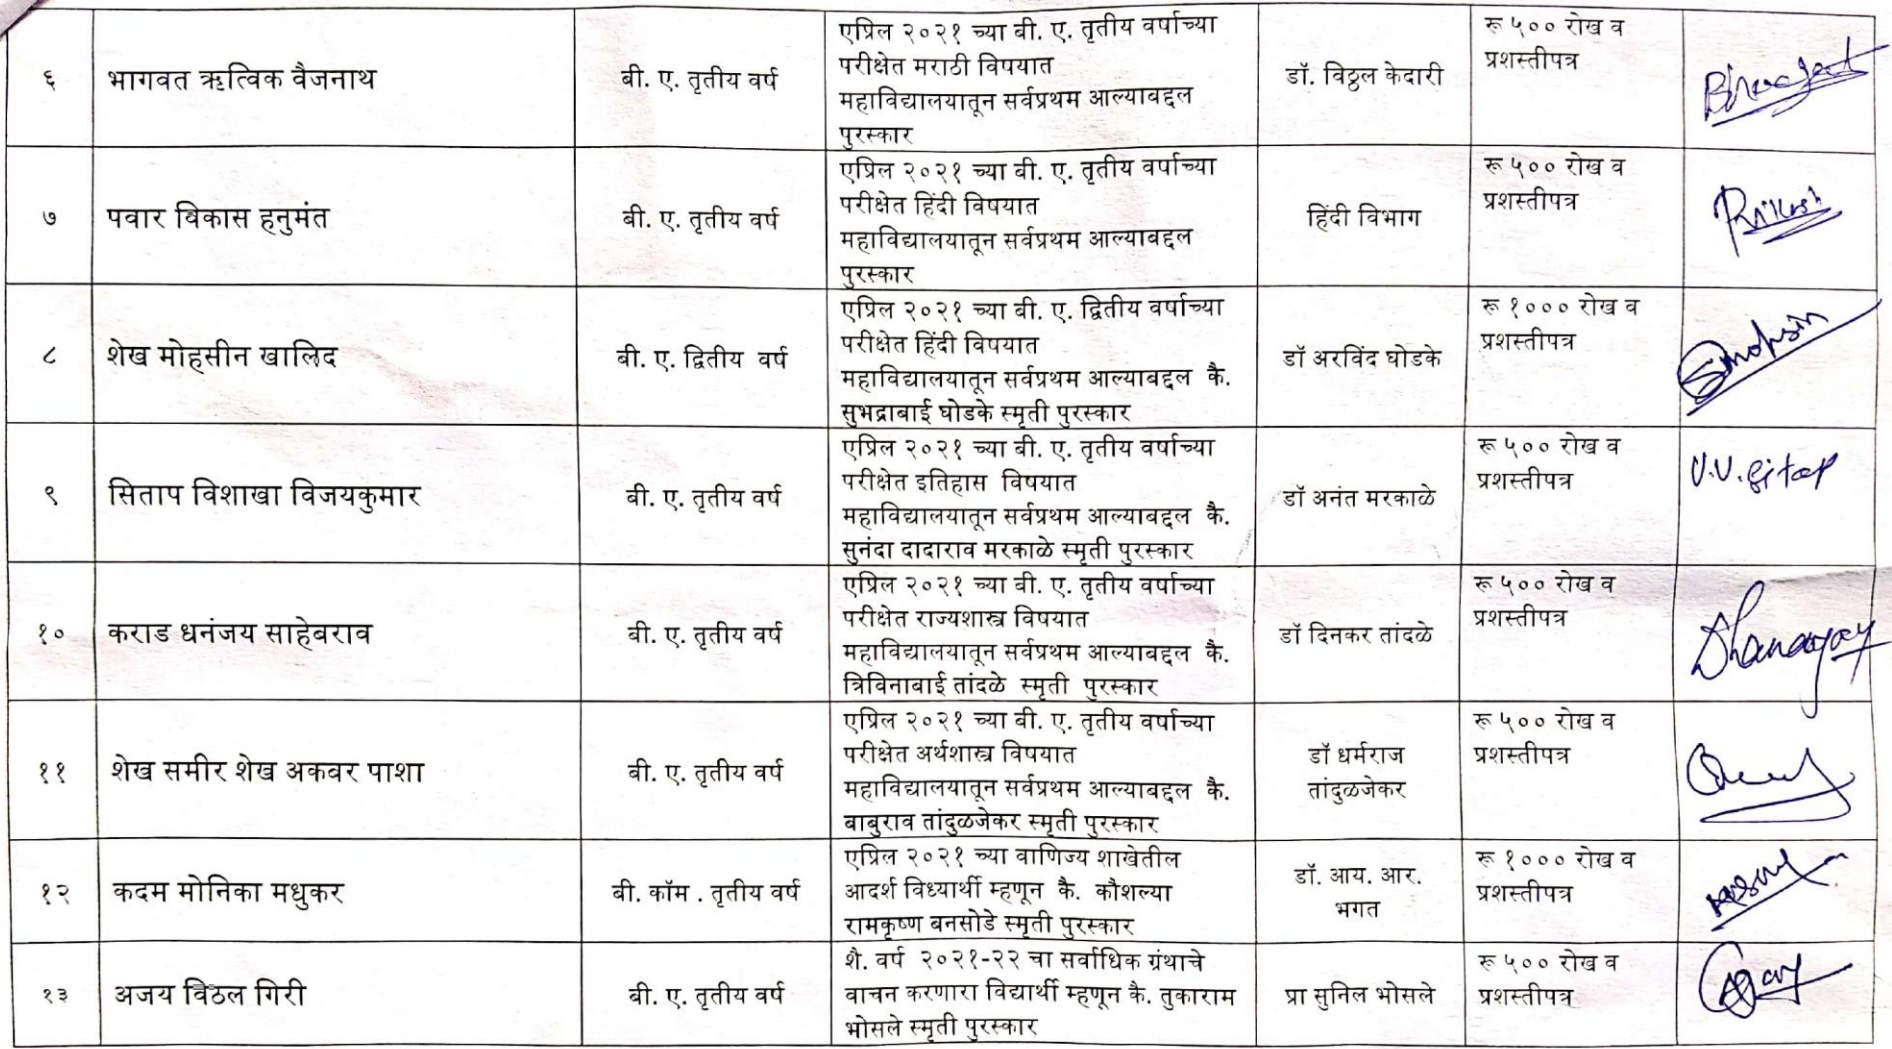 ६
भागवत ऋत्विक वैजनाथ
बी. ए. तृतीय वर्ष
एप्रिल २०२१ च्या बी. ए. तृतीय वर्षाच्या
परीक्षेत मराठी विषयात
महाविद्यालयातून सर्वप्रथम आल्याबद्दल
पुरस्कार
डॉ. विठ्ठल केदारी
रू ५०० रोख व
प्रशस्तीपत्र
७
पवार विकास हनुमंत
बी. ए. तृतीय वर्ष
एप्रिल २०२१ च्या बी. ए. तृतीय वर्षाच्या
परीक्षेत हिंदी विषयात
महाविद्यालयातून सर्वप्रथम आल्याबद्दल
पुरस्कार
हिंदी विभाग
रू ५०० रोख व
प्रशस्तीपत्र
८
शेख मोहसीन खालिद
बी. ए. द्वितीय वर्ष
एप्रिल २०२१ च्या बी. ए. द्वितीय वर्षाच्या
परीक्षेत हिंदी विषयात
महाविद्यालयातून सर्वप्रथम आल्याबद्दल कै.
सुभद्राबाई घोडके स्मृती पुरस्कार
डॉ अरविंद घोडके
रू १००० रोख व
प्रशस्तीपत्र
९
सिताप विशाखा विजयकुमार
बी. ए. तृतीय वर्ष
एप्रिल २०२१ च्या बी. ए. तृतीय वर्षाच्या
परीक्षेत इतिहास विषयात
महाविद्यालयातून सर्वप्रथम आल्याबद्दल कै.
सुनंदा दादाराव मरकाळे स्मृती पुरस्कार
डॉ अनंत मरकाळे
रू ५०० रोख व
प्रशस्तीपत्र
V.V. Sitap
१०
कराड धनंजय साहेबराव
बी. ए. तृतीय वर्ष
एप्रिल २०२१ च्या बी. ए. तृतीय वर्षाच्या
परीक्षेत राज्यशास्त्र विषयात
महाविद्यालयातून सर्वप्रथम आल्याबद्दल कै.
त्रिविनाबाई तांदळे स्मृती पुरस्कार
डॉ दिनकर तांदळे
रू ५०० रोख व
प्रशस्तीपत्र
Dhananjay
११
शेख समीर शेख अकबर पाशा
बी. ए. तृतीय वर्ष
एप्रिल २०२१ च्या बी. ए. तृतीय वर्षाच्या
परीक्षेत अर्थशास्त्र विषयात
महाविद्यालयातून सर्वप्रथम आल्याबद्दल कै.
बाबुराव तांदुळजेकर स्मृती पुरस्कार
डॉ धर्मराज
तांदुळजेकर
रू ५०० रोख व
प्रशस्तीपत्र
१२
कदम मोनिका मधुकर
बी. कॉम . तृतीय वर्ष
एप्रिल २०२१ च्या वाणिज्य शाखेतील
आदर्श विध्यार्थी म्हणून कै. कौशल्या
रामकृष्ण बनसोडे स्मृती पुरस्कार
डॉ. आय. आर.
भगत
रू १००० रोख व
प्रशस्तीपत्र
१३
अजय विठल गिरी
बी. ए. तृतीय वर्ष
शै. वर्ष २०२१-२२ चा सर्वाधिक ग्रंथाचे
वाचन करणारा विद्यार्थी म्हणून कै. तुकाराम
भोसले स्मृती पुरस्कार
प्रा सुनिल भोसले
रू ५०० रोख व
प्रशस्तीपत्र